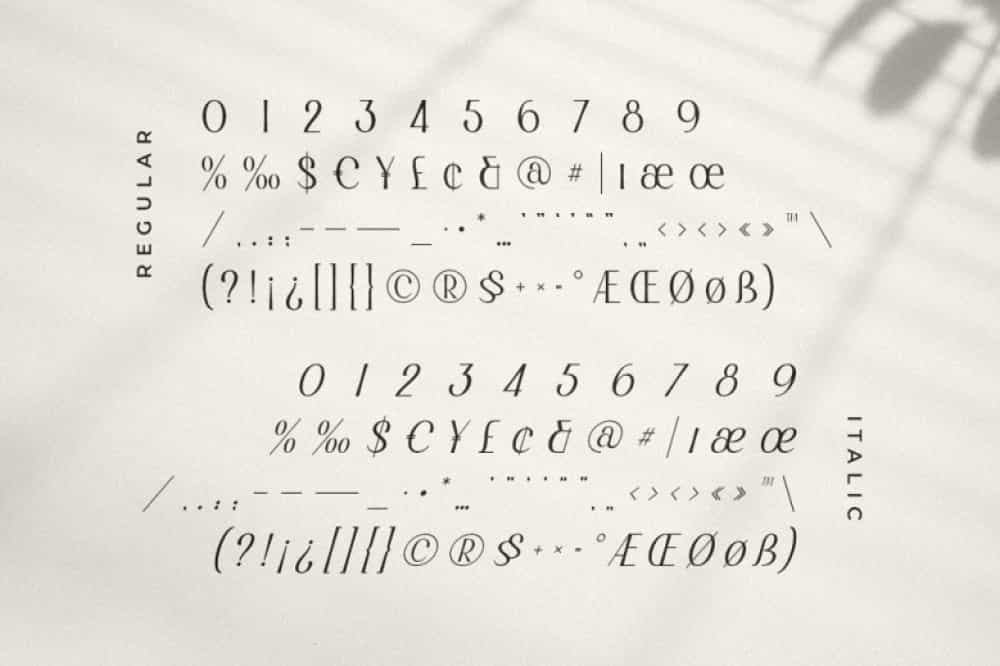 REGULAR
0 1 2 3 4 5 6 7 8 9
% ‰ $ € ¥ £ ¢ & @ # | ı æ œ
/ , . : ; – – — _ · • * … ' " ‘ ’ “ ” ‚ „ ‹ › < > « » ™ \
(?!¡¿[]{}©®§+×-°ÆŒØøß)
0 1 2 3 4 5 6 7 8 9
% ‰ $ € ¥ £ ¢ & @ # | ı æ œ
/ , . : ; – – — _ · • * … ' " ‘ ’ “ ” ‚ „ ‹ › < > « » ™ \
(?!¡¿[]{}©®§+×-°ÆŒØøß)
ITALIC